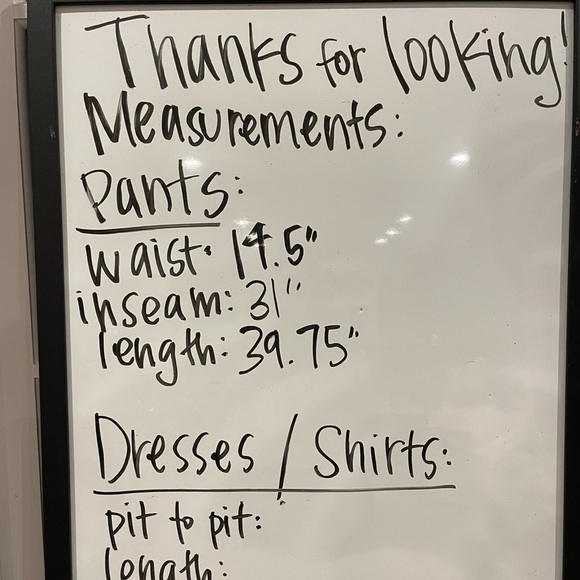 Thanks for looking!
Measurements:
Pants:
waist: 14.5"
inseam: 31"
length: 39.75"
Dresses / Shirts:
pit to pit:
length: